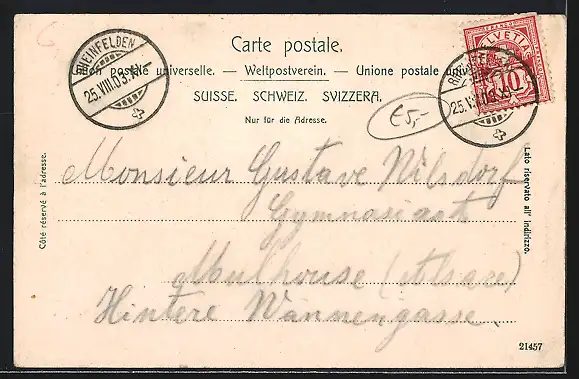 Carte postale.
Union postale universelle. — Weltpostverein. — Unione postale universale
SUISSE. SCHWEIZ. SVIZZERA.
Nur für die Adresse.
RHEINFELDEN
25.VIII.03.
FRANCO
HELVETIA
10
25.VIII.03.
€5,-
Côté réservé à l'adresse.
Lato riservato all' indirizzo.
Monsieur Gustave Wilsdorf
Gymnasiast
Mulhouse (Alsace)
Hintere Wannengasse.
21457